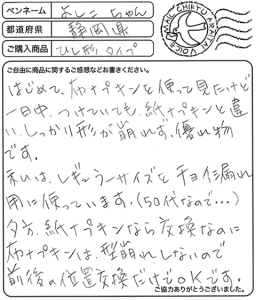 ペンネーム よしこちゃん
都道府県 静岡県
ご購入商品 ひし形タイプ
MAIL CHIKYU ARATAI VOICE
ご自由に商品に関するご感想などお書きください。
はじめて、布ナプキンを使って見たけど
一日中、つけていても、紙ナプキンと違
い、しっかり形が崩れず、優れ物
です。
私は、レギュラーサイズをチョイ漏れ
用に使っています。(50代なので…)
夕方、紙ナプキンなら交換なのに
布ナプキンは、型崩れしないので
前後の位置交換だけでOKです。
ご協力ありがとうございました。